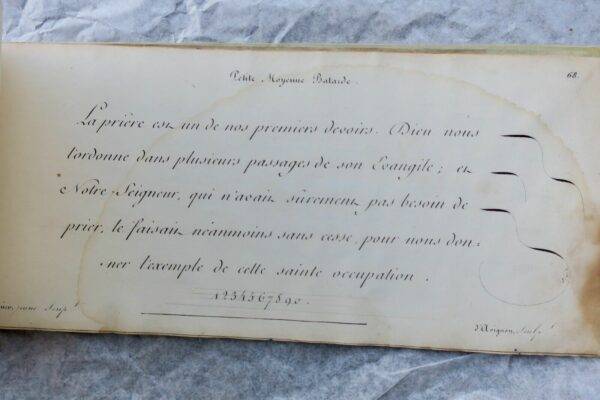 Petite Moyenne Batarde.
68.
La prière est un de nos premiers devoirs. Dieu nous
l'ordonne dans plusieurs passages de son Evangile ; et
Notre-Seigneur, qui n'avait sûrement pas besoin de
prier, le faisait néanmoins sans cesse, pour nous don=
ner l'exemple de cette sainte occupation.
1234567890.
jeune Sculp.t
d'Avignon, Sculp.t